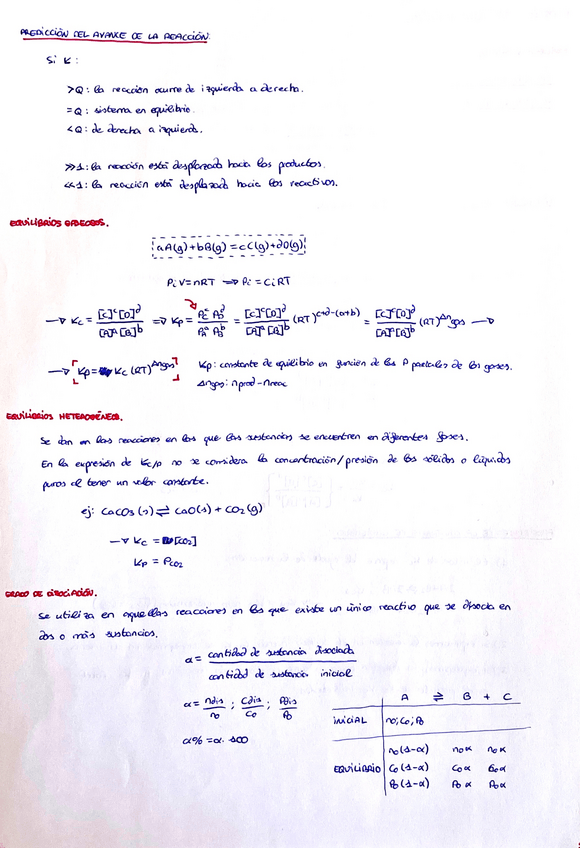 PREDICCIÓN DEL AVANCE DE LA REACCIÓN.
Si K:
>Q: la reacción ocurre de izquierda a derecha.
=Q: sistema en equilibrio.
<Q: de derecha a izquierda.
>>1: la reacción está desplazada hacia los productos.
<<1: la reacción está desplazada hacia los reactivos.
EQUILIBRIOS GASEOSOS.
aA(g)+bB(g)=cC(g)+dD(g)
PiV=nRT → Pi=CiRT
→ Kc = [C]^c[D]^d / [A]^a[B]^b ⇒ Kp = Pc^c Pd^d / Pa^a Pb^b = [C]^c[D]^d / [A]^a[B]^b (RT)^c+d-(a+b) = [C]^c[D]^d / [A]^a[B]^b (RT)^Δngas →
→ [Kp = Kc(RT)^Δngas] Kp: constante de equilibrio en función de las P parciales de los gases.
Δngas: nprod-nreac
EQUILIBRIOS HETEROGÉNEOS.
Se dan en las reacciones en las que las sustancias se encuentren en diferentes fases.
En la expresión de Kc/p no se considera la concentración/presión de los sólidos o líquidos
puros al tener un valor constante.
ej: CaCO3(s) ⇌ CaO(s) + CO2(g)
→ Kc = [CO2]
Kp = PCO2
GRADO DE DISOCIACIÓN.
Se utiliza en aquellas reacciones en las que existe un único reactivo que se disocia en
dos o más sustancias.
α = cantidad de sustancia disociada / cantidad de sustancia inicial
α = ndis/n0 ; Cdis/C0 ; Pdis/P0
α% = α · 100
A ⇌ B + C
INICIAL n0; C0; P0
n0(1-α) n0α n0α
EQUILIBRIO C0(1-α) C0α C0α
P0(1-α) P0α P0α